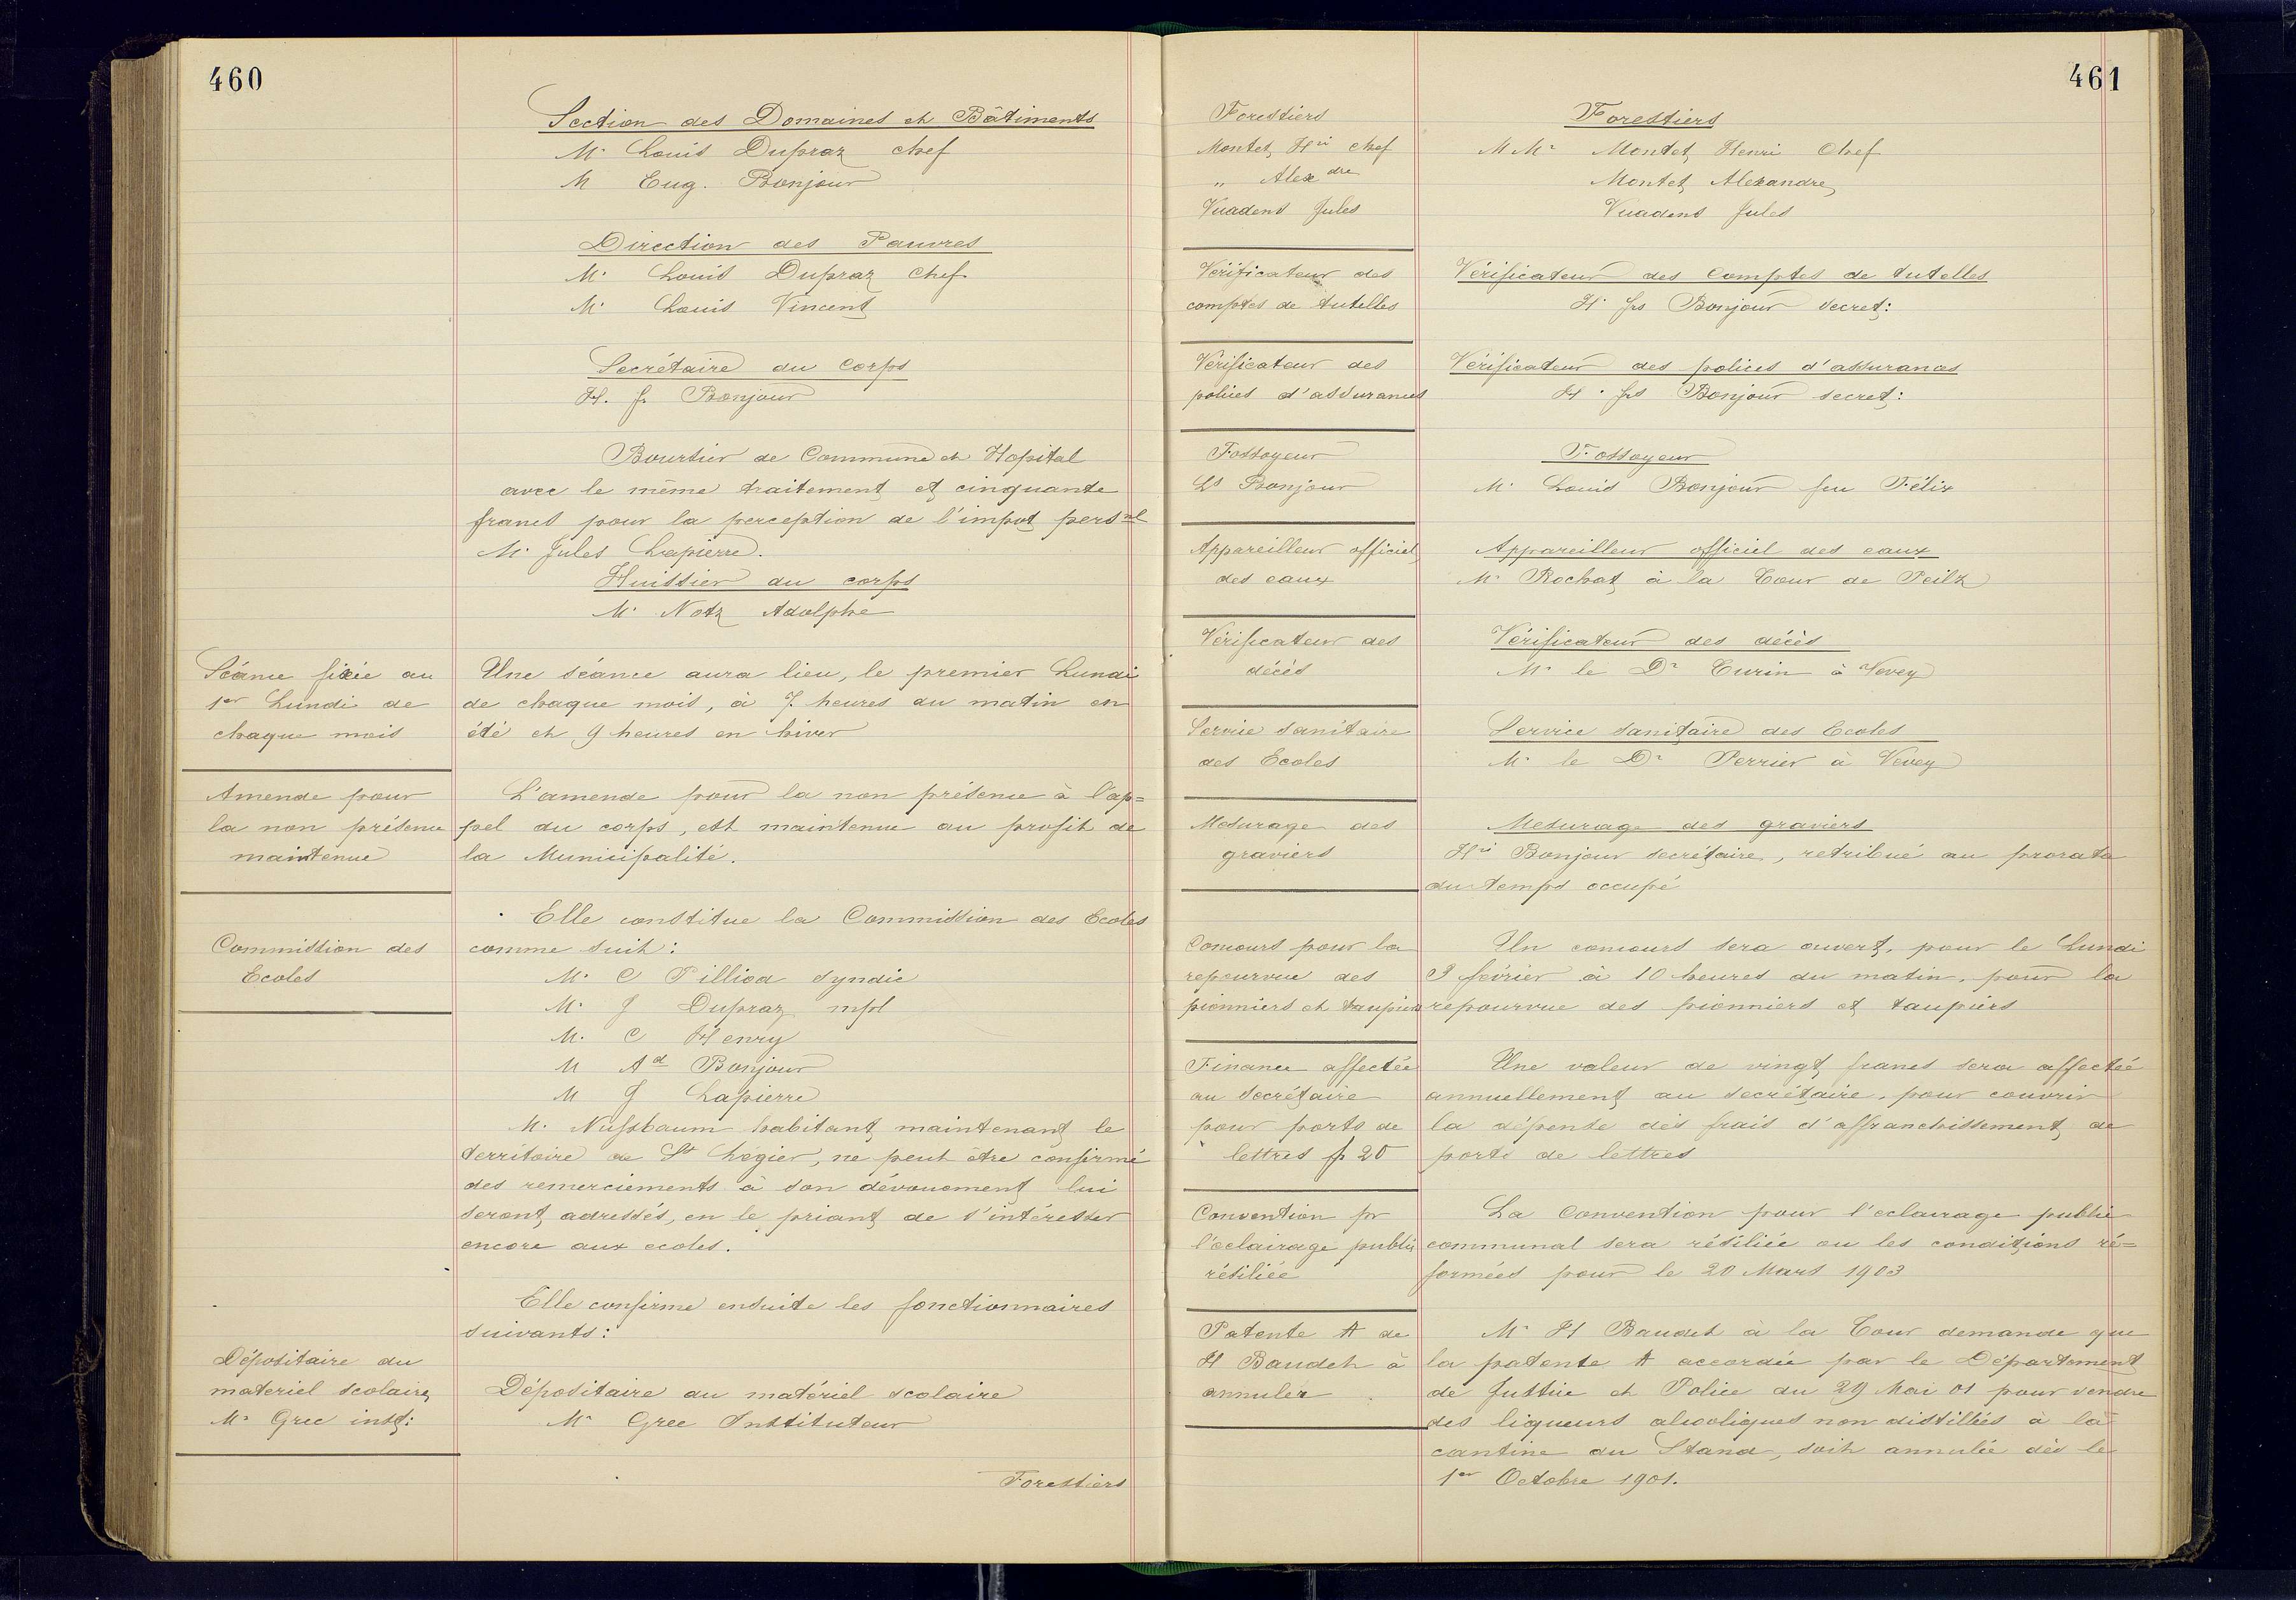 460
Section des Domaines et Bâtiments
M. Louis Dupraz chef
M Eug. Bonjour
Direction des Pauvres
M. Louis Dupraz chef
M. Louis Vincent
Secrétaire du Corps
H. fs Bonjour
Boursier de Commune et Hopital
avec le même traitement et cinquante
francs pour la perception de l'impot persnl
M. Jules Lapierre.
Huissier du corps
M. Notz Adolphe
Séance fixée au
1er Lundi de
chaque mois
Une séance aura lieu, le premier Lundi
de chaque mois, à 7 heures du matin en
été et 9 heures en hiver
Amende pour
la non présence
maintenue
L'amende pour la non présence à l'ap=
pel du corps, est maintenue au profit de
la Municipalité.
Commission des
Ecoles
Elle constitue la Commission des Ecoles
comme suit :
M. C Pilliod syndic
M. J Dupraz mpl
M. C Henry
M Ad Bonjour
M J Lapierre
M. Nussbaum habitant maintenant le
territoire de St Legier, ne peut etre confirmé
des remerciements à son dévouement lui
seront adressés, en le priant de s'intéresser
encore aux ecoles.
Elle confirme ensuite les fonctionnaires
suivants :
Dépositaire du
materiel scolaire
Mr Grec inst:
Dépositaire du matériel scolaire
Mr Grec Instituteur
Forestiers
461
Forestiers
Montet Hri chef
" Alexdre
Vuadens Jules
Forestiers
MMr Montet Henri Chef
Montet Alexandre
Vuadens Jules
Vérificateur des
comptes de tutelles
Vérificateur des Comptes de tutelles
H. fs Bonjour secret:
Vérificateur des
polices d'assurances
Vérificateur des polices d'assurances
H. fs Bonjour secret:
Fossoyeur
Ls Bonjour
Fossoyeur
M. Louis Bonjour feu Félix
Appareilleur officiel
des eaux
Appareilleur officiel des eaux
Mr Rochat à la Tour de Peilz
Vérificateur des
décès
Vérificateur des décès
Mr le Dr Turin à Vevey
Service sanitaire
des Ecoles
Service sanitaire des Ecoles
Mr le Dr Perrier à Vevey
Mesurage des
graviers
Mesurage des graviers
Hri Bonjour secrétaire, retribué au prorata
du temps occupé
Concours pour la
repourvue des
pionniers et taupiers
Un concours sera ouvert, pour le Lundi
3 février à 10 heures du matin, pour la
repourvue des pionniers et taupiers
Finance affectée
au Secrétaire
pour ports de
lettres fr 20
Une valeur de vingt francs sera affectée
annuellement au secrétaire, pour couvrir
la dépense des frais d'affranchissement de
ports de lettres
Convention pr
l'eclairage public
résiliée
La Convention pour l'eclairage public
communal sera résiliée ou les conditions ré=
formées pour le 20 Mars 1903
Patente A de
H Baudet à
annuler
Mr H Baudet à la Tour demande que
la patente A accordée par le Département
de Justice et Police du 29 Mai 01 pour vendre
des liqueurs alcooliques non distillées à la
cantine du Stand, soit annulée dès le
1er Octobre 1901.